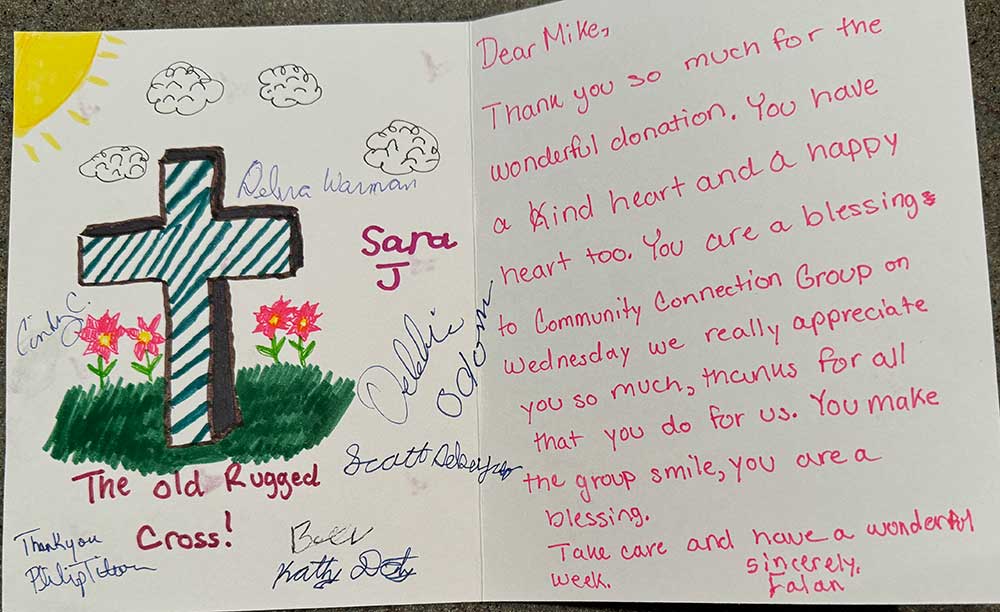 Debra Warman
Sara
J
Cindy C.
Debbie
Odom
Scott
The old Rugged
Cross!
Thank you
Philip
Kathy
Dear Mike,
Thank you so much for the
wonderful donation. You have
a kind heart and a happy
heart too. You are a blessing
to Community Connection Group on
Wednesday we really appreciate
you so much, thanks for all
that you do for us. You make
the group smile, you are a
blessing.
Take care and have a wonderful
week.
sincerely,
Falan